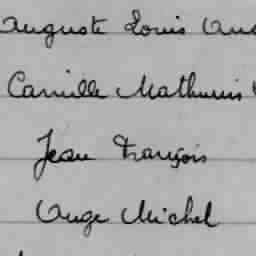 Auguste Louis
Camille Mathurin
Jean François
Ange Michel